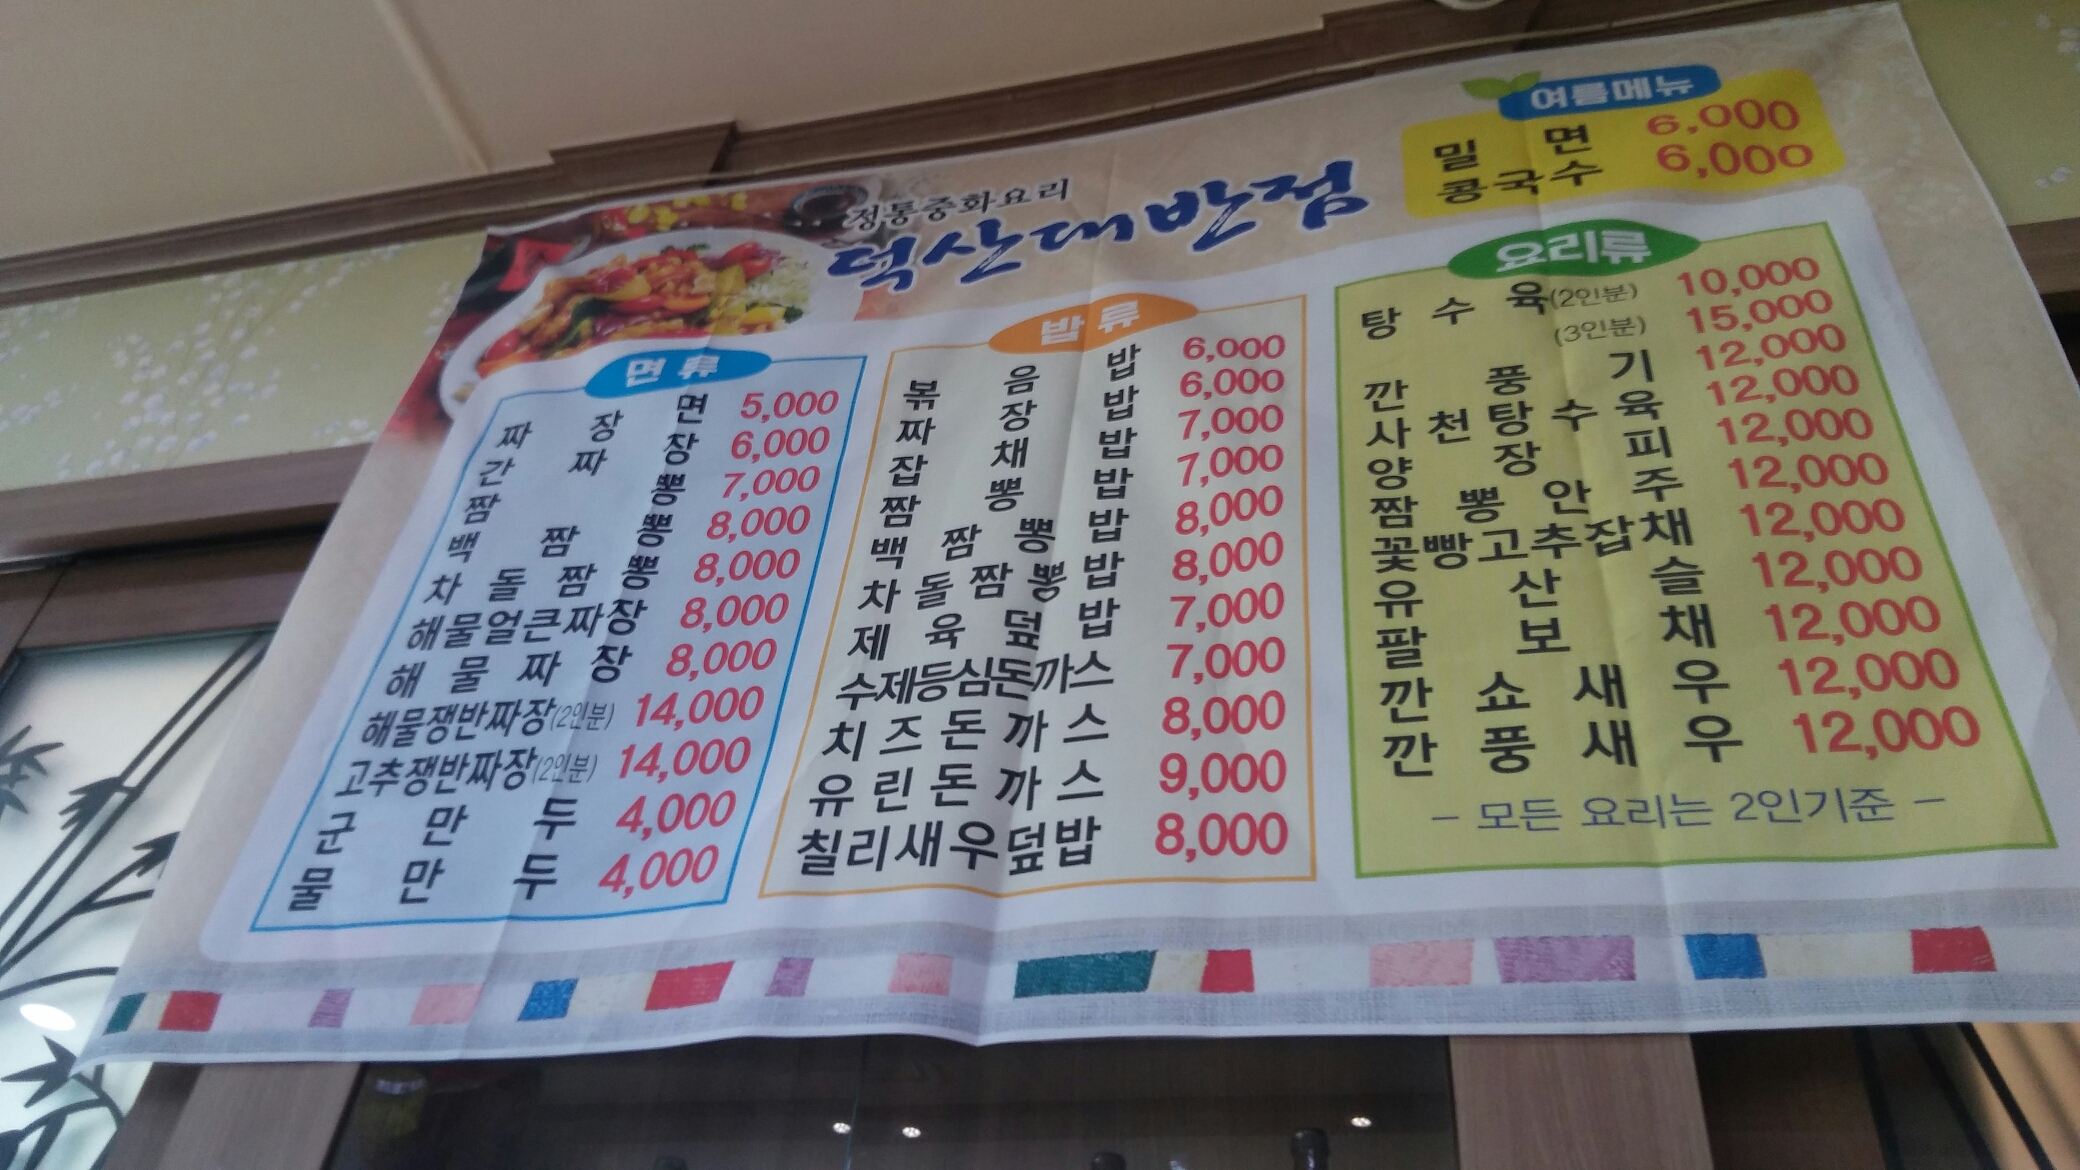 정통중화요리
덕산대반점
여름메뉴
밀면 6,000
콩국수 6,000
면류
짜장면 5,000
간짜장 6,000
짬뽕 7,000
백짬뽕 8,000
차돌짬뽕 8,000
해물얼큰짜장 8,000
해물짜장 8,000
해물쟁반짜장(2인분) 14,000
고추쟁반짜장(2인분) 14,000
군만두 4,000
물만두 4,000
밥류
볶음밥 6,000
짜장밥 6,000
잡채밥 7,000
짬뽕밥 7,000
백짬뽕밥 8,000
차돌짬뽕밥 8,000
제육덮밥 7,000
수제등심돈까스 7,000
치즈돈까스 8,000
유린돈까스 9,000
칠리새우덮밥 8,000
요리류
탕수육(2인분) 10,000
(3인분) 15,000
깐풍기 12,000
사천탕수육 12,000
양장피 12,000
짬뽕안주 12,000
꽃빵고추잡채 12,000
유산슬 12,000
팔보채 12,000
깐쇼새우 12,000
깐풍새우 12,000
- 모든 요리는 2인기준 -